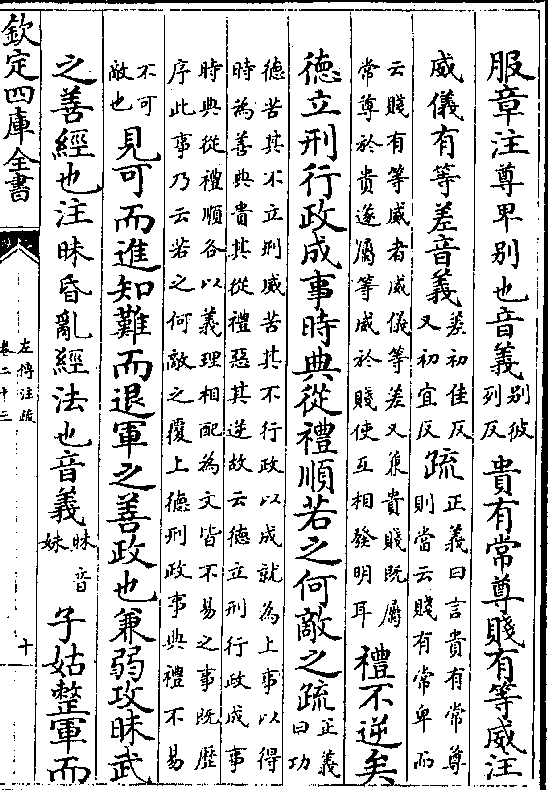 服章注尊卑别也音義别彼列反貴有常尊賤有等威注
威儀有等差音義差初佳反又初宜反疏正義曰言貴有常尊則當云賤有常卑而
云賤有等威者威儀等差文兼貴賤既屬常尊於貴遂屬等威於賤使互相發明耳禮不逆矣
德立刑行政成事時典從禮順若之何敵之疏正義曰功
德苦其不立刑威苦其不行政以成就為上事以得
時為善典貴其從禮惡其逆故云德立刑行政成事
時典從禮順各以義理相配為文皆不易之事既歷
序此事乃云若之何敵之覆上德刑政事典禮不易
不可敵也見可而進知難而退軍之善政也兼弱攻昧武
之善經也注昧昏亂經法也音義昧音妹子姑整軍而
欽定四庫全書
左傳注疏
卷二十三
十